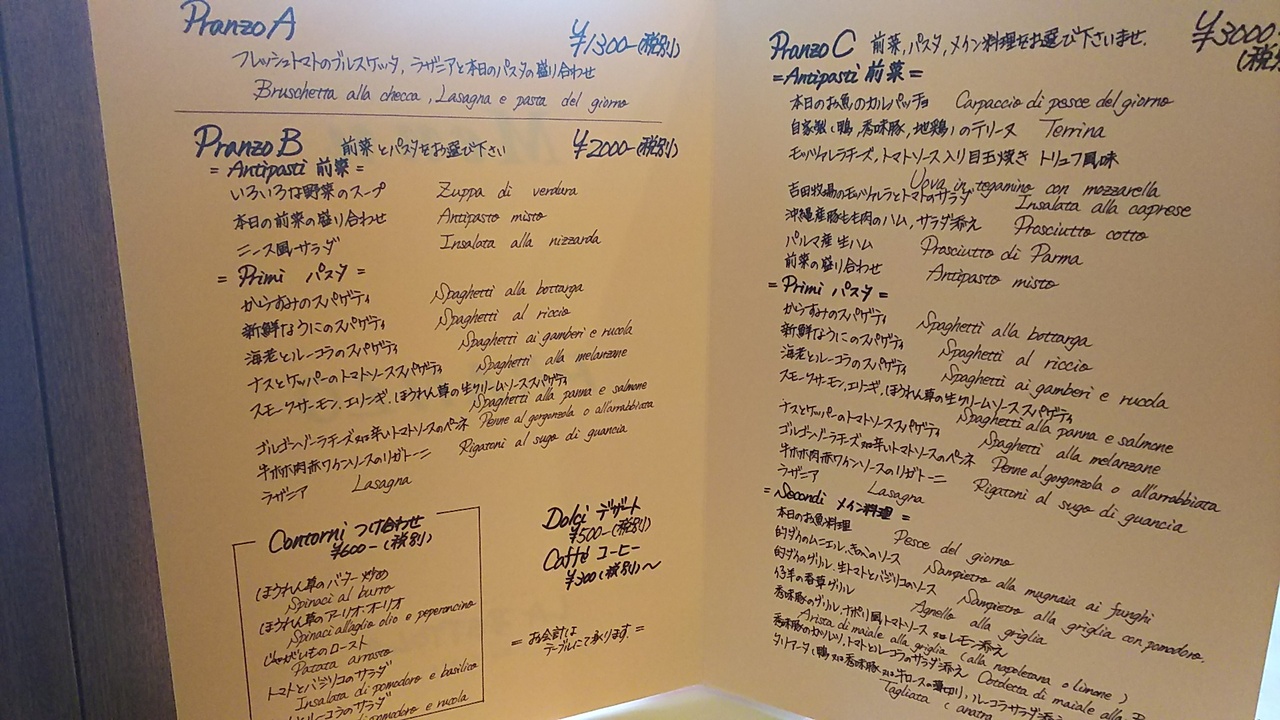 Pranzo A ¥1300-(税別)
フレッシュトマトのブルスケッタ, ラザニアと本日のパスタの盛り合わせ
Bruschetta alla checca, Lasagna e pasta del giorno
Pranzo B 前菜とパスタをお選び下さい ¥2000-(税別)
= Antipasti 前菜 =
いろいろな野菜のスープ Zuppa di verdura
本日の前菜の盛り合わせ Antipasto misto
ニース風サラダ Insalata alla nizzarda
= Primi パスタ =
からすみのスパゲティ Spaghetti alla bottarga
新鮮なうにのスパゲティ Spaghetti al riccio
海老とルーコラのスパゲティ Spaghetti ai gamberi e rucola
ナスとケッパーのトマトソーススパゲティ Spaghetti alla melanzane
スモークサーモン, エリンギ, ほうれん草の生クリームソーススパゲティ
Spaghetti alla panna e salmone
ゴルゴンゾーラチーズ又は辛いトマトソースのペンネ Penne al gorgonzola o all'arrabbiata
牛ホホ肉赤ワインソースのリガトーニ Rigatoni al sugo di guancia
ラザニア Lasagna
Contorni つけ合わせ
¥600-(税別)
ほうれん草のバター炒め
Spinaci al burro
ほうれん草のアーリオ・オーリオ
Spinaci all'aglio olio e peperoncino
じゃがいものロースト
Patata arrosto
トマトとバジリコのサラダ
Insalata di pomodoro e basilico
トとルーコラのサラダ
pomodoro e rucola
Dolci デザート
¥500-(税別)
Caffé コーヒー
¥300(税別)〜
= お会計は
テーブルにて承ります =
Pranzo C 前菜, パスタ, メイン料理をお選び下さいませ. ¥3000-
(税
= Antipasti 前菜 =
本日のお魚のカルパッチョ Carpaccio di pesce del giorno
自家製(鴨, 香味豚, 地鶏)のテリーヌ Terrina
モッツァレラチーズ, トマトソース入り目玉焼き トリュフ風味
Uova in tegamino con mozzarella
吉田牧場のモッツァレラとトマトのサラダ Insalata alla caprese
沖縄産豚もも肉のハム, サラダ添え Prosciutto cotto
パルマ産生ハム Prosciutto di Parma
前菜の盛り合わせ Antipasto misto
= Primi パスタ =
からすみのスパゲティ Spaghetti alla bottarga
新鮮なうにのスパゲティ Spaghetti al riccio
海老とルーコラのスパゲティ Spaghetti ai gamberi e rucola
スモークサーモン, エリンギ, ほうれん草の生クリームソーススパゲティ
Spaghetti alla panna e salmone
ナスとケッパーのトマトソーススパゲティ Spaghetti alla melanzane
ゴルゴンゾーラチーズ又は辛いトマトソースのペンネ Penne al gorgonzola o all'arrabbiata
牛ホホ肉赤ワインソースのリガトーニ Rigatoni al sugo di guancia
ラザニア Lasagna
= Secondi メイン料理 =
本日のお魚料理 Pesce del giorno
的ダイのムニエル, きのこのソース Sampietro alla mugnaia ai funghi
的ダイのグリル, 生トマトとバジリコのソース Sampietro alla griglia con pomodoro
仔羊の香草グリル Agnello alla griglia
香味豚のグリル, ナポリ風トマトソース又はレモン添え
Arista di maiale alla griglia (alla napoletana o limone)
香味豚のカツレツ, トマトとルーコラのサラダ添え Cotoletta di maiale alla
タリアータ(鴨又は香味豚又は牛ロースの薄切り, ルーコラサラダ添え
Tagliata (anatra